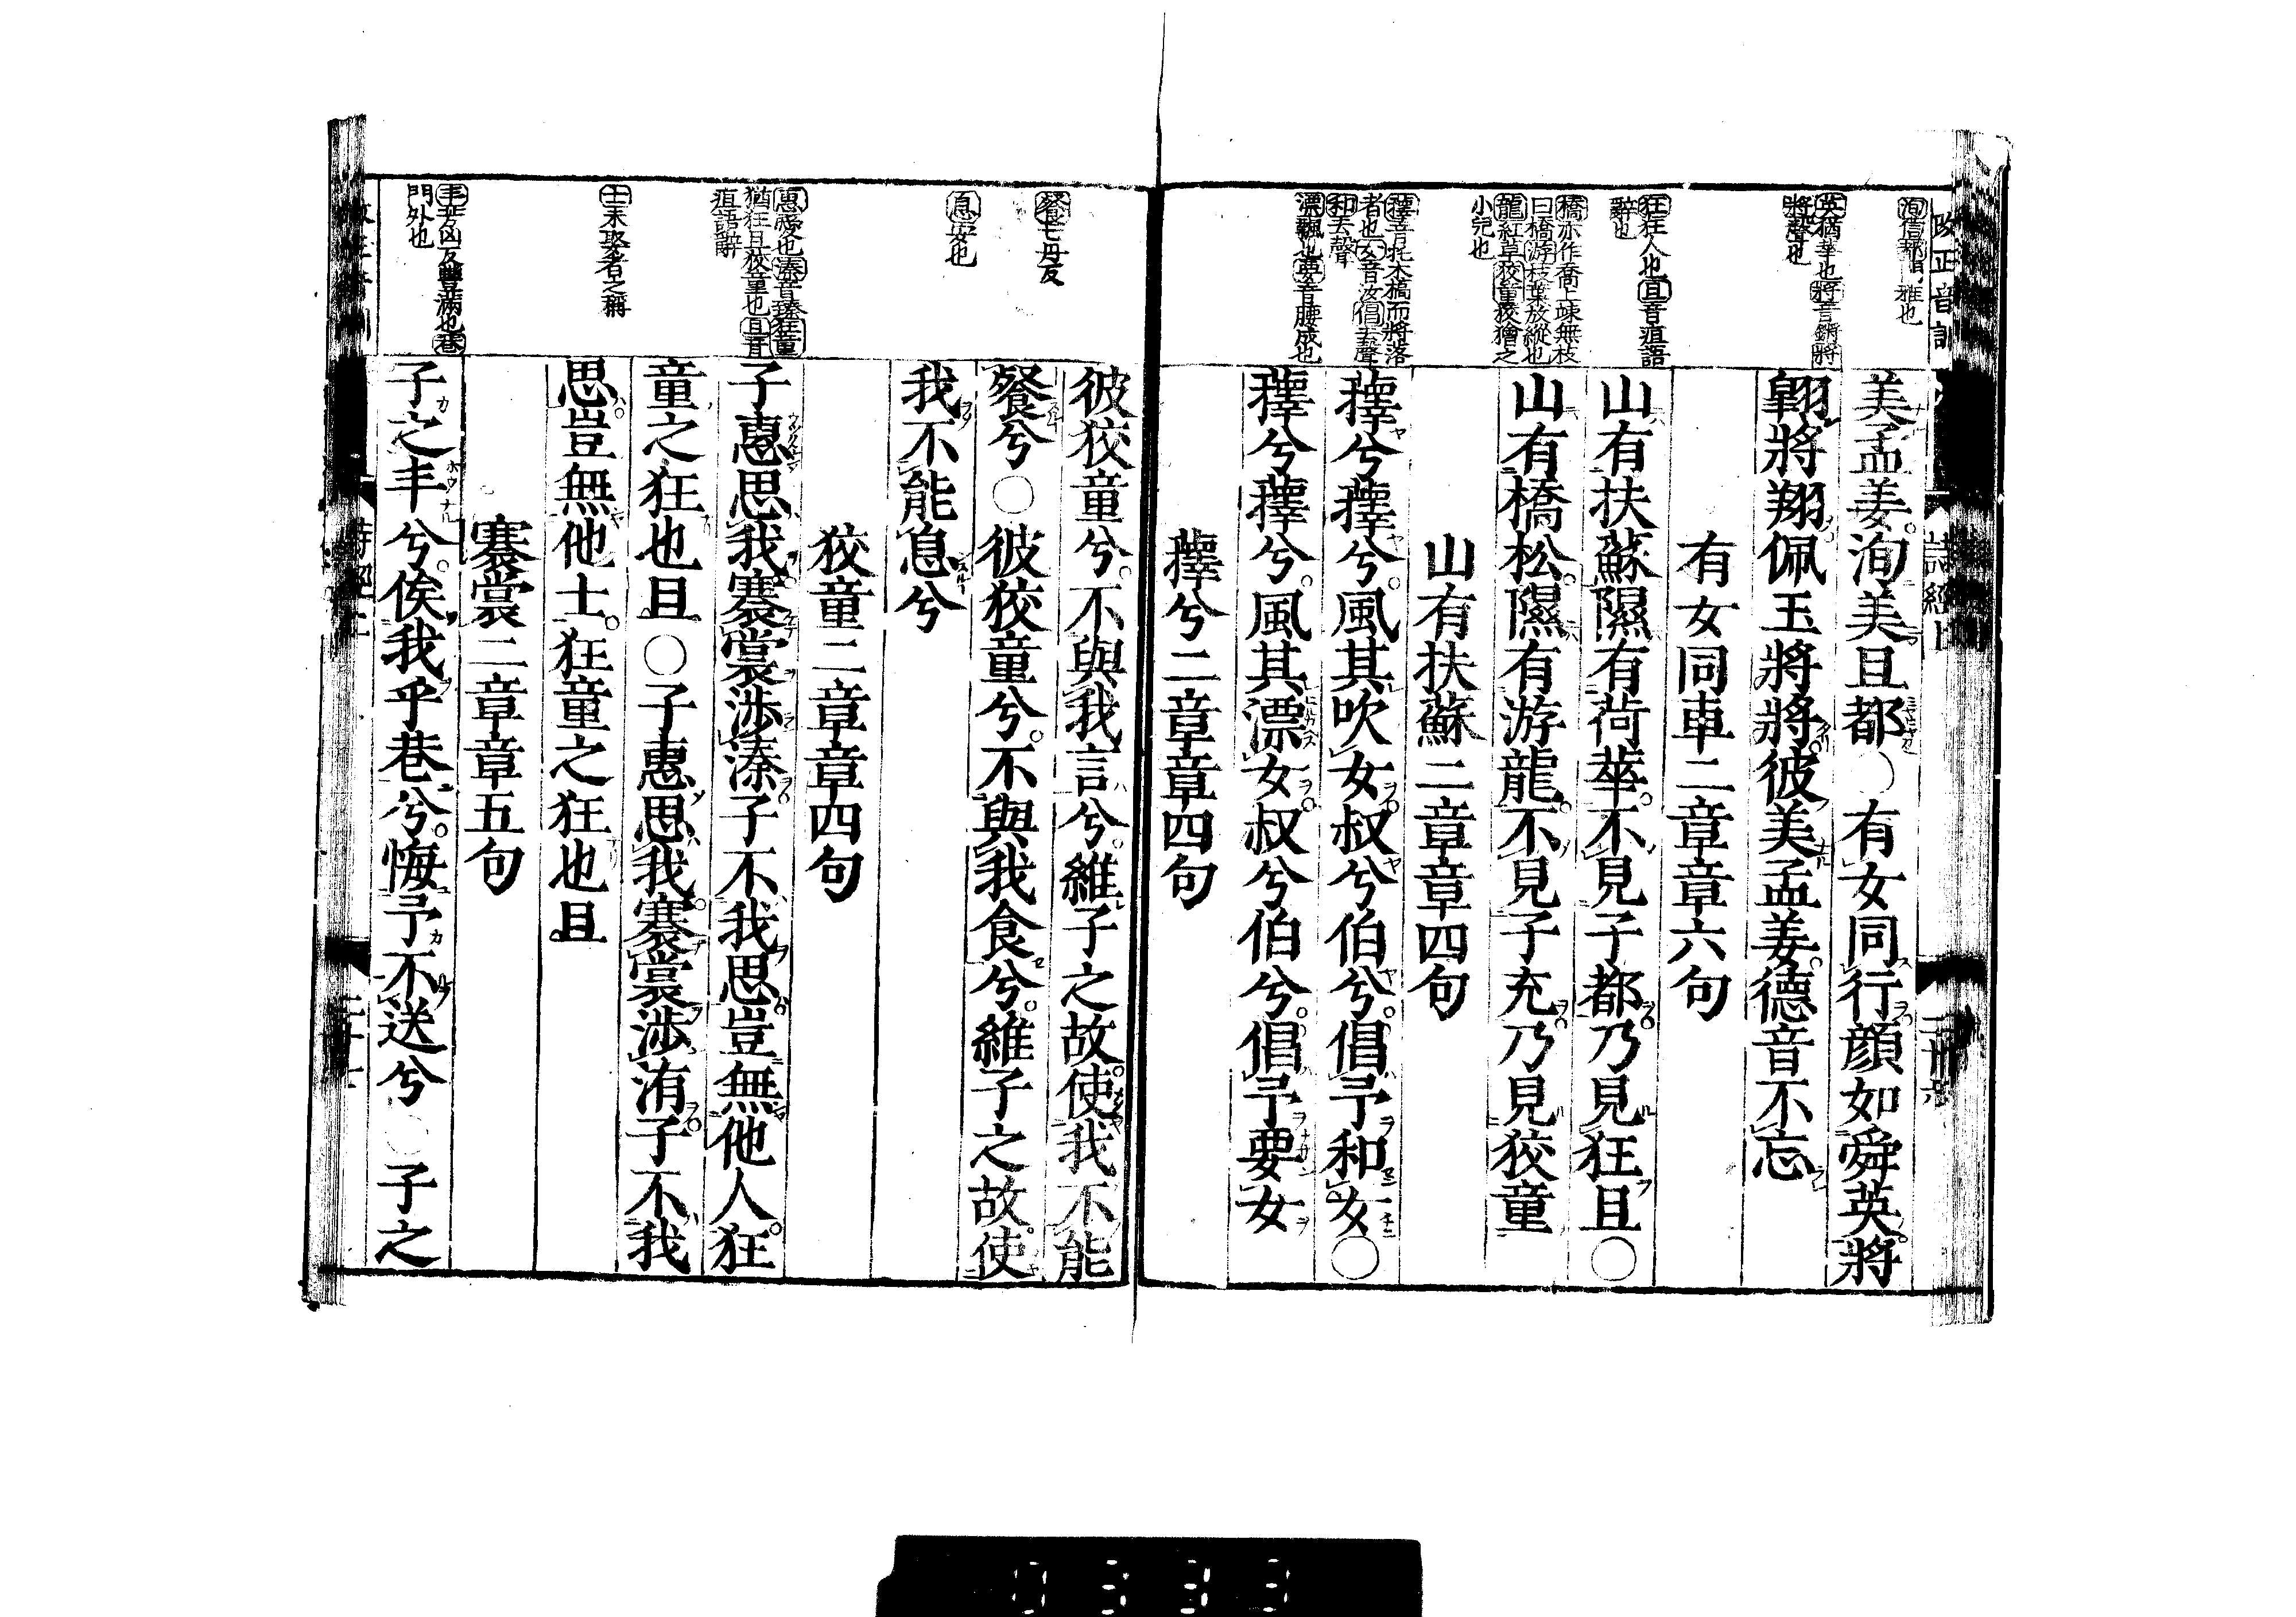 改正音訓
詩經上
洵信都閑雅也
英猶華也將音鏘將
將聲也
狂狂人也且音疽語
辭也
橋亦作喬上竦無枝
曰橋游枝葉放縱也
龍紅草狡童狡獪之
小兒也
蘀音托木槁而將落
者也女音汝倡去聲
和去聲
漂飄也要音腰成也
美孟姜洵美且都○有女同行顏如舜英將
翺將翔佩玉將將彼美孟姜德音不忘
有女同車二章章六句
山有扶蘇隰有荷華不見子都乃見狂且○
山有橋松隰有游龍不見子充乃見狡童
山有扶蘇二章章四句
蘀兮蘀兮風其吹女叔兮伯兮倡予和女○
蘀兮蘀兮風其漂女叔兮伯兮倡予要女
蘀兮二章章四句
餐七丹反
息安也
惠愛也溱音臻狂童
猶狂且狡童也且音
疽語辭
士未娶者之稱
丰芳凶反豐滿也巷
門外也
彼狡童兮不與我言兮維子之故使我不能
餐兮○彼狡童兮不與我食兮維子之故使
我不能息兮
狡童二章章四句
子惠思我褰裳涉溱子不我思豈無他人狂
童之狂也且○子惠思我褰裳涉洧子不我
思豈無他士狂童之狂也且
褰裳二章章五句
子之丰兮俟我乎巷兮悔予不送兮○子之